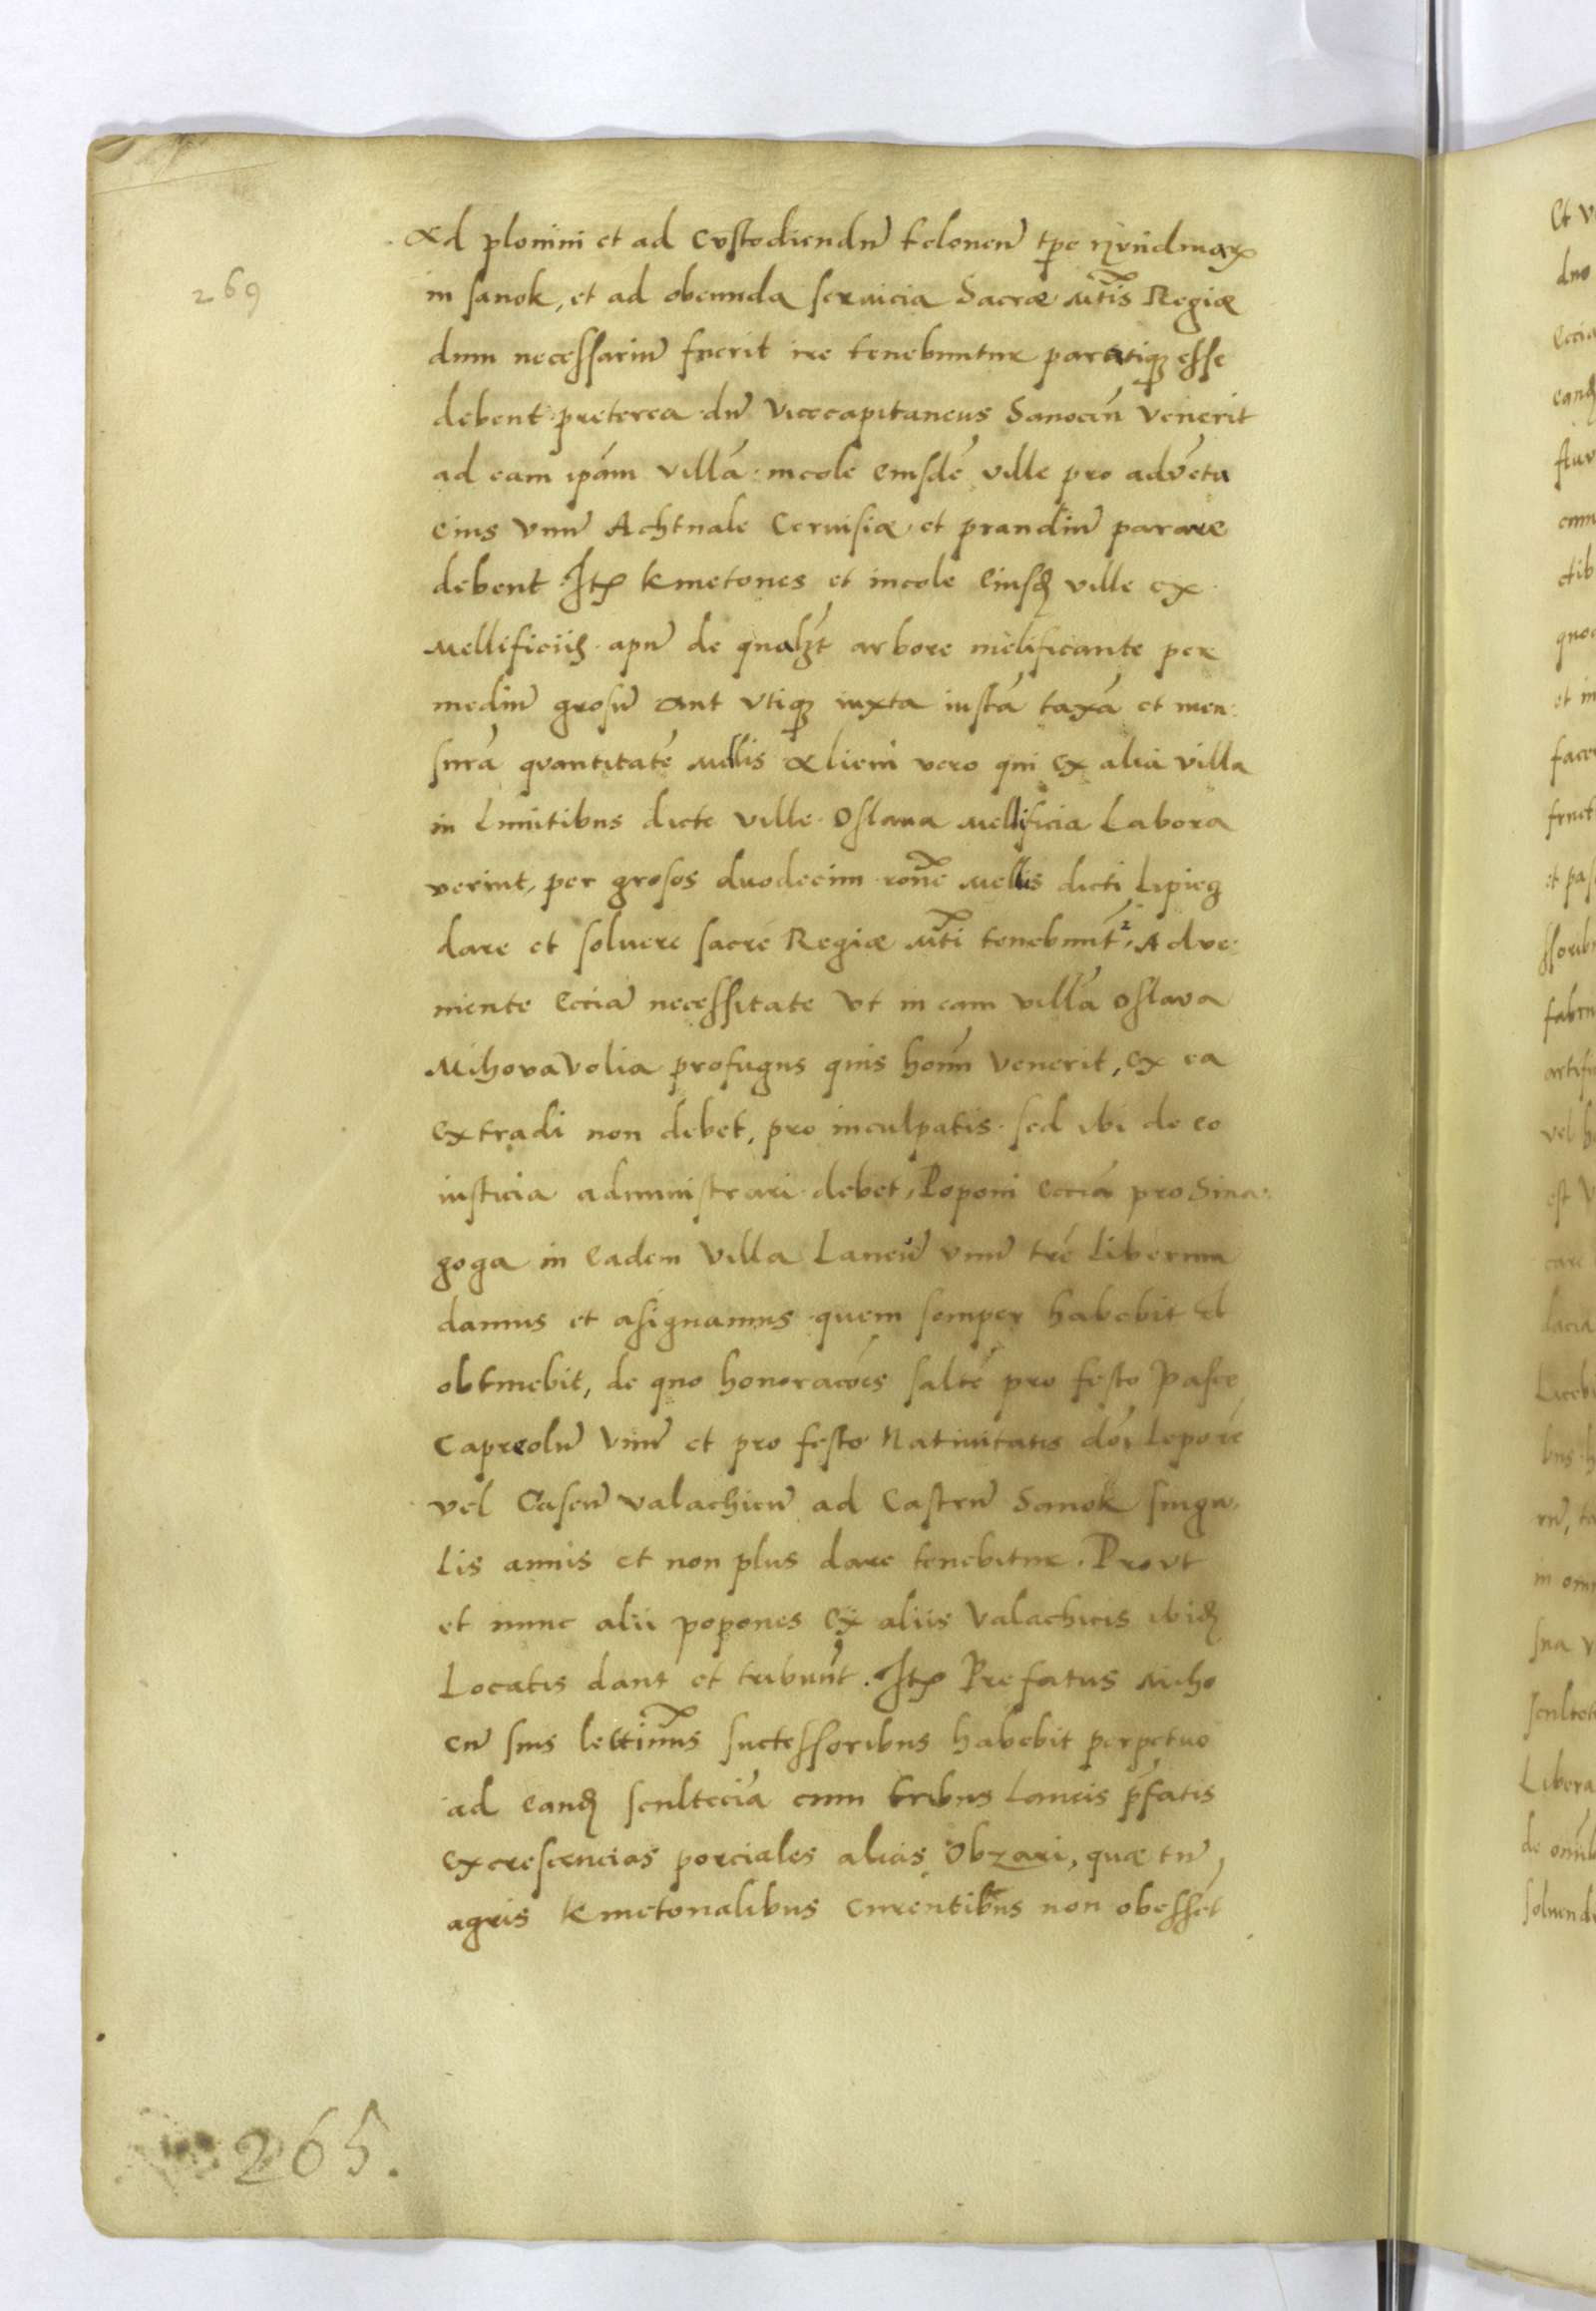 269
Ad plonini et ad Custodiendū teloneū tpe nundinarꝝ
in sanok, et ad obeunda seruicia Sacræ Mtis Regiæ
dum necessariū fuerit ire tenebuntur paratiqꝫ esse
debent preterea dū Vicecapitaneus Sanocēn Venerit
ad eam ipām villā incole eiusdē ville pro advētu
eius Vnū Achtuale Ceruisiæ et prandiū parare
debent Itꝫ kmetones et incole eiusꝺ ville ex
Mellificiis apū de qualꝫt arbore melificante per
mediū grosū aut vtiqꝫ iuxta iustā taxā et men:
surā quantitatē Mellis Alieni vero qui ex alia villa
in Limitibus dicte ville Oslaua Mellificia Labora
verint, per grosos duodecim rone Mellis dicti Lipieg
dare et soluere sacre Regiæ Mti tenebunt². Adve:
niente Eciā necessitate vt in eam villā Oslava
Mihova Volia profugus quis homī Venerit, ex ea
extradi non debet, pro inculpatis sed ibi de eo
iusticia administrari debet, Poponi Eciā pro Sina:
goga in Eadem Villa Laneū vnū trē Liberum
damus et asignamus quem semper habebit et
obtinebit, de quo honoracōes saltē pro festo Pasce
Capreolū Vnū et pro festo Nativitatis dōi Leporē
vel Caseū valachicū ad Castrū Sanok singu:
lis annis et non plus dare tenebitur. Provt
et nunc alii popones Ex aliis Valachicis ibiꝺ
Locatis dant et tribuūt. Itꝫ Prefatus Miho
cū suis lettimis successoribus habebit perpetuo
ad eanꝺ scultеciā cum tribus Laneis p̄fatis
excrescencias porciales alias Obzari, quæ tn̄
agris kmetonalibus Currentibus non obessēt
265.